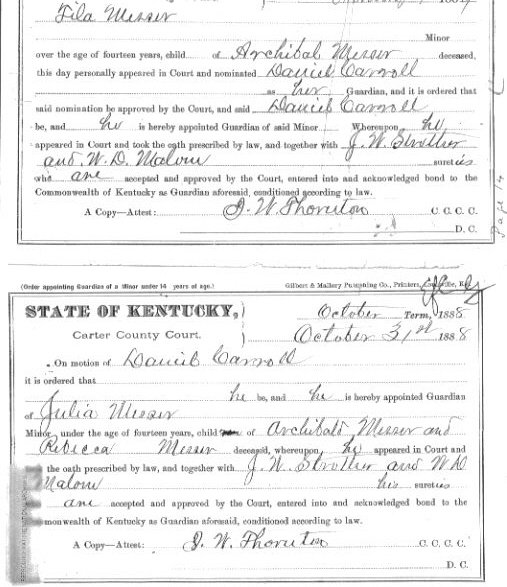 Fila Messer
Minor
over the age of fourteen years, child of Archibal Messer deceased,
this day personally appeared in Court and nominated Daniel Carroll
as her Guardian, and it is ordered that
said nomination be approved by the Court, and said Daniel Carroll
be, and he is hereby appointed Guardian of said Minor Whereupon he
appeared in Court and took the oath prescribed by law, and together with J. W. Strother
and W. D. Malone sureties
who are accepted and approved by the Court, entered into and acknowledged bond to the
Commonwealth of Kentucky as Guardian aforesaid, conditioned according to law.
A Copy—Attest: J. W. Thornton C. C. C. C.
D. C.
Page 14
(Order appointing Guardian of a Minor under 14 years of age.) Gilbert & Mallery Printers,
STATE OF KENTUCKY, October Term, 1888
Carter County Court. October 31st 1888
On motion of Daniel Carroll
it is ordered that
he be, and he is hereby appointed Guardian
of Julia Messer
Minor under the age of fourteen years, child of Archibald Messer and
Rebecca Messer deceased, whereupon he appeared in Court and
the oath prescribed by law, and together with J. W. Strother and W D
Malone his sureties
are accepted and approved by the Court, entered into and acknowledged bond to the
monwealth of Kentucky as Guardian aforesaid, conditioned according to law.
A Copy—Attest: J. W. Thornton C. C. C. C.
D. C.